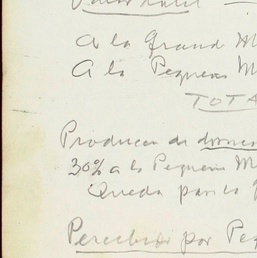 A la Grand M
A la Pequeña M
TOTA
Produccion de
30% a la Pequeña M
Queda para la
Percibido por Peq